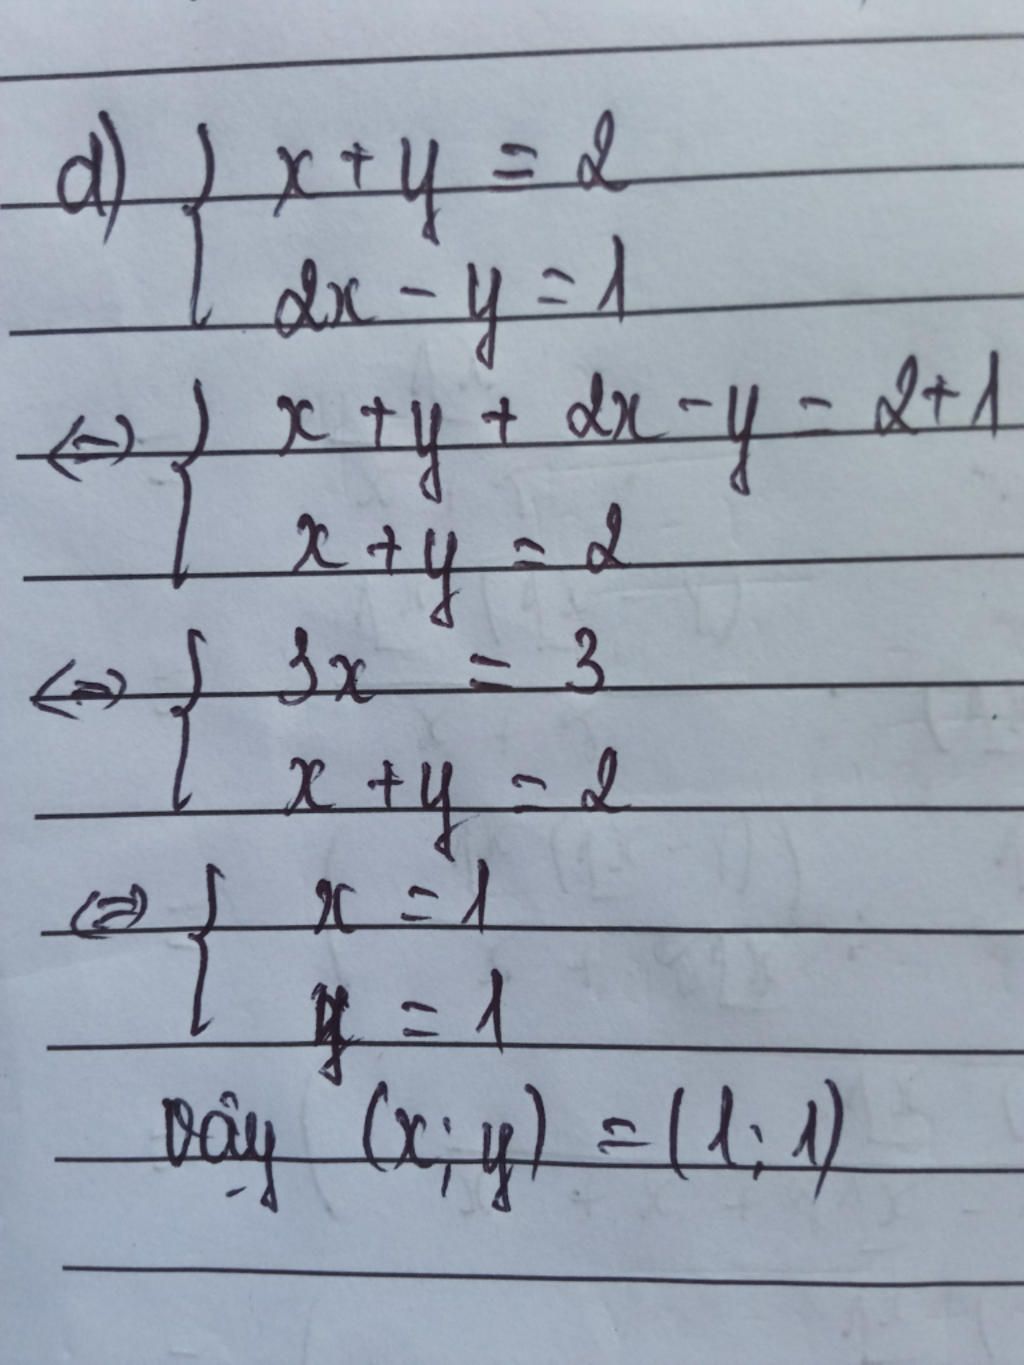 d) { x + y = 2
2x - y = 1
<=> { x + y + 2x - y = 2 + 1
x + y = 2
<=> { 3x = 3
x + y = 2
<=> { x = 1
y = 1
vậy (x; y) = (1; 1)